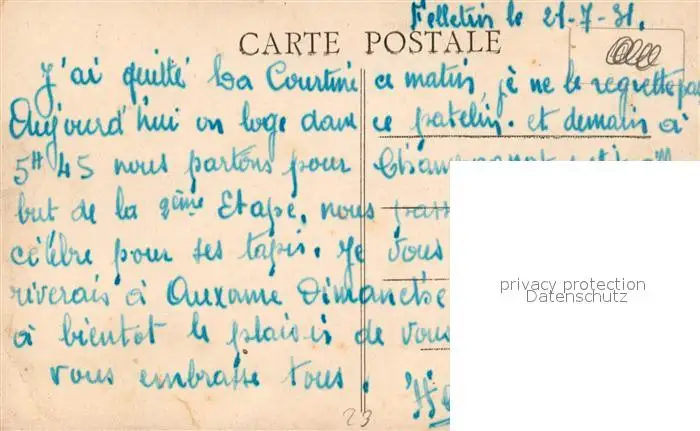 Felletin le 21-7-31.
CARTE POSTALE
J'ai quitté La Courtine ce matin, je ne le regrette pas
Aujourd'hui on loge dans ce patelin. et demain à
5H45 nous partons pour
but de la 2ème Etape. nous
célèbre pour ses tapis. Je vous
riverais à Auxonne Dimanche
à bientot le plaisir de vous
vous embrasse tous.
23
privacy protection
Datenschutz